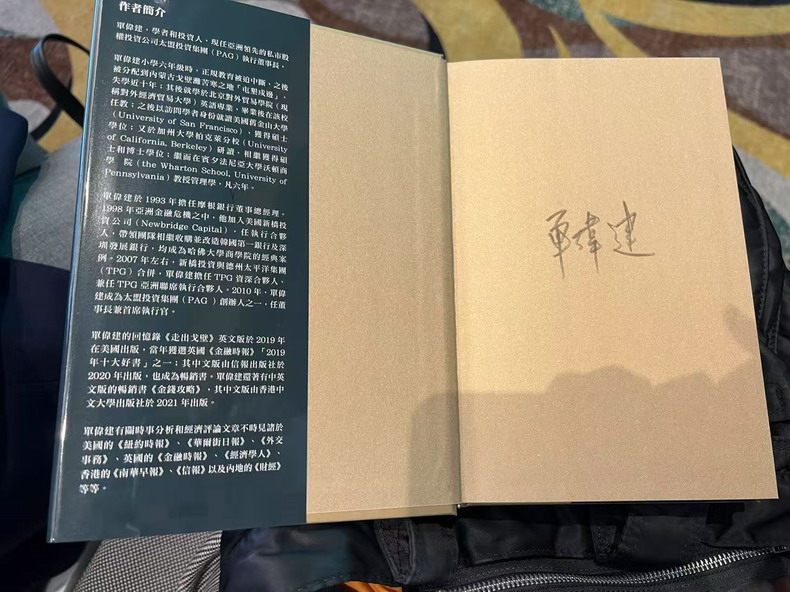 作者簡介
單偉建，學者和投資人、現任亞洲領先的私市股
權投資公司太盟投資集團（PAG）執行董事長。
單偉建小學六年級時，正規教育被迫中斷、之後
被分配到內蒙古戈壁灘苦寒之地「屯墾戍邊」，
失學近十年；其後就學於北京對外貿易學院（現
稱對外經濟貿易大學）英語專業，畢業後在該校
任教；之後以訪問學者身份就讀美國舊金山大學
（University of San Francisco）、獲得碩士
學位；又於加州大學柏克萊分校（University
of California, Berkeley）研讀，相繼獲得碩
士和博士學位；繼而在賓夕法尼亞大學沃頓商
學院（the Wharton School, University of
Pennsylvania）教授管理學，凡六年。
單偉建於 1993 年擔任摩根銀行董事總經理。
1998 年亞洲金融危機之中，他加入美國新橋投
資公司（Newbridge Capital），任執行合夥
人，帶領團隊相繼收購並改造韓國第一銀行及深
圳發展銀行，均成為哈佛大學商學院的經典案
例。2007 年左右，新橋投資與德州太平洋集團
（TPG）合併，單偉建擔任 TPG 資深合夥人、
兼任 TPG 亞洲聯席執行合夥人。2010 年，單偉
建成為太盟投資集團（PAG）創辦人之一，任董
事長兼首席執行官。
單偉建的回憶錄《走出戈壁》英文版於 2019 年
在美國出版，當年獲選英國《金融時報》「2019
年十大好書」之一；其中文版由信報出版社於
2020 年出版，也成為暢銷書。單偉建還著有中英
文版的暢銷書《金錢攻略》，其中文版由香港中
文大學出版社於 2021 年出版。
單偉建有關時事分析和經濟評論文章不時見諸於
美國的《紐約時報》、《華爾街日報》、《外交
事務》、英國的《金融時報》、《經濟學人》、
香港的《南華早報》、《信報》以及內地的《財經》
等等。
單偉建